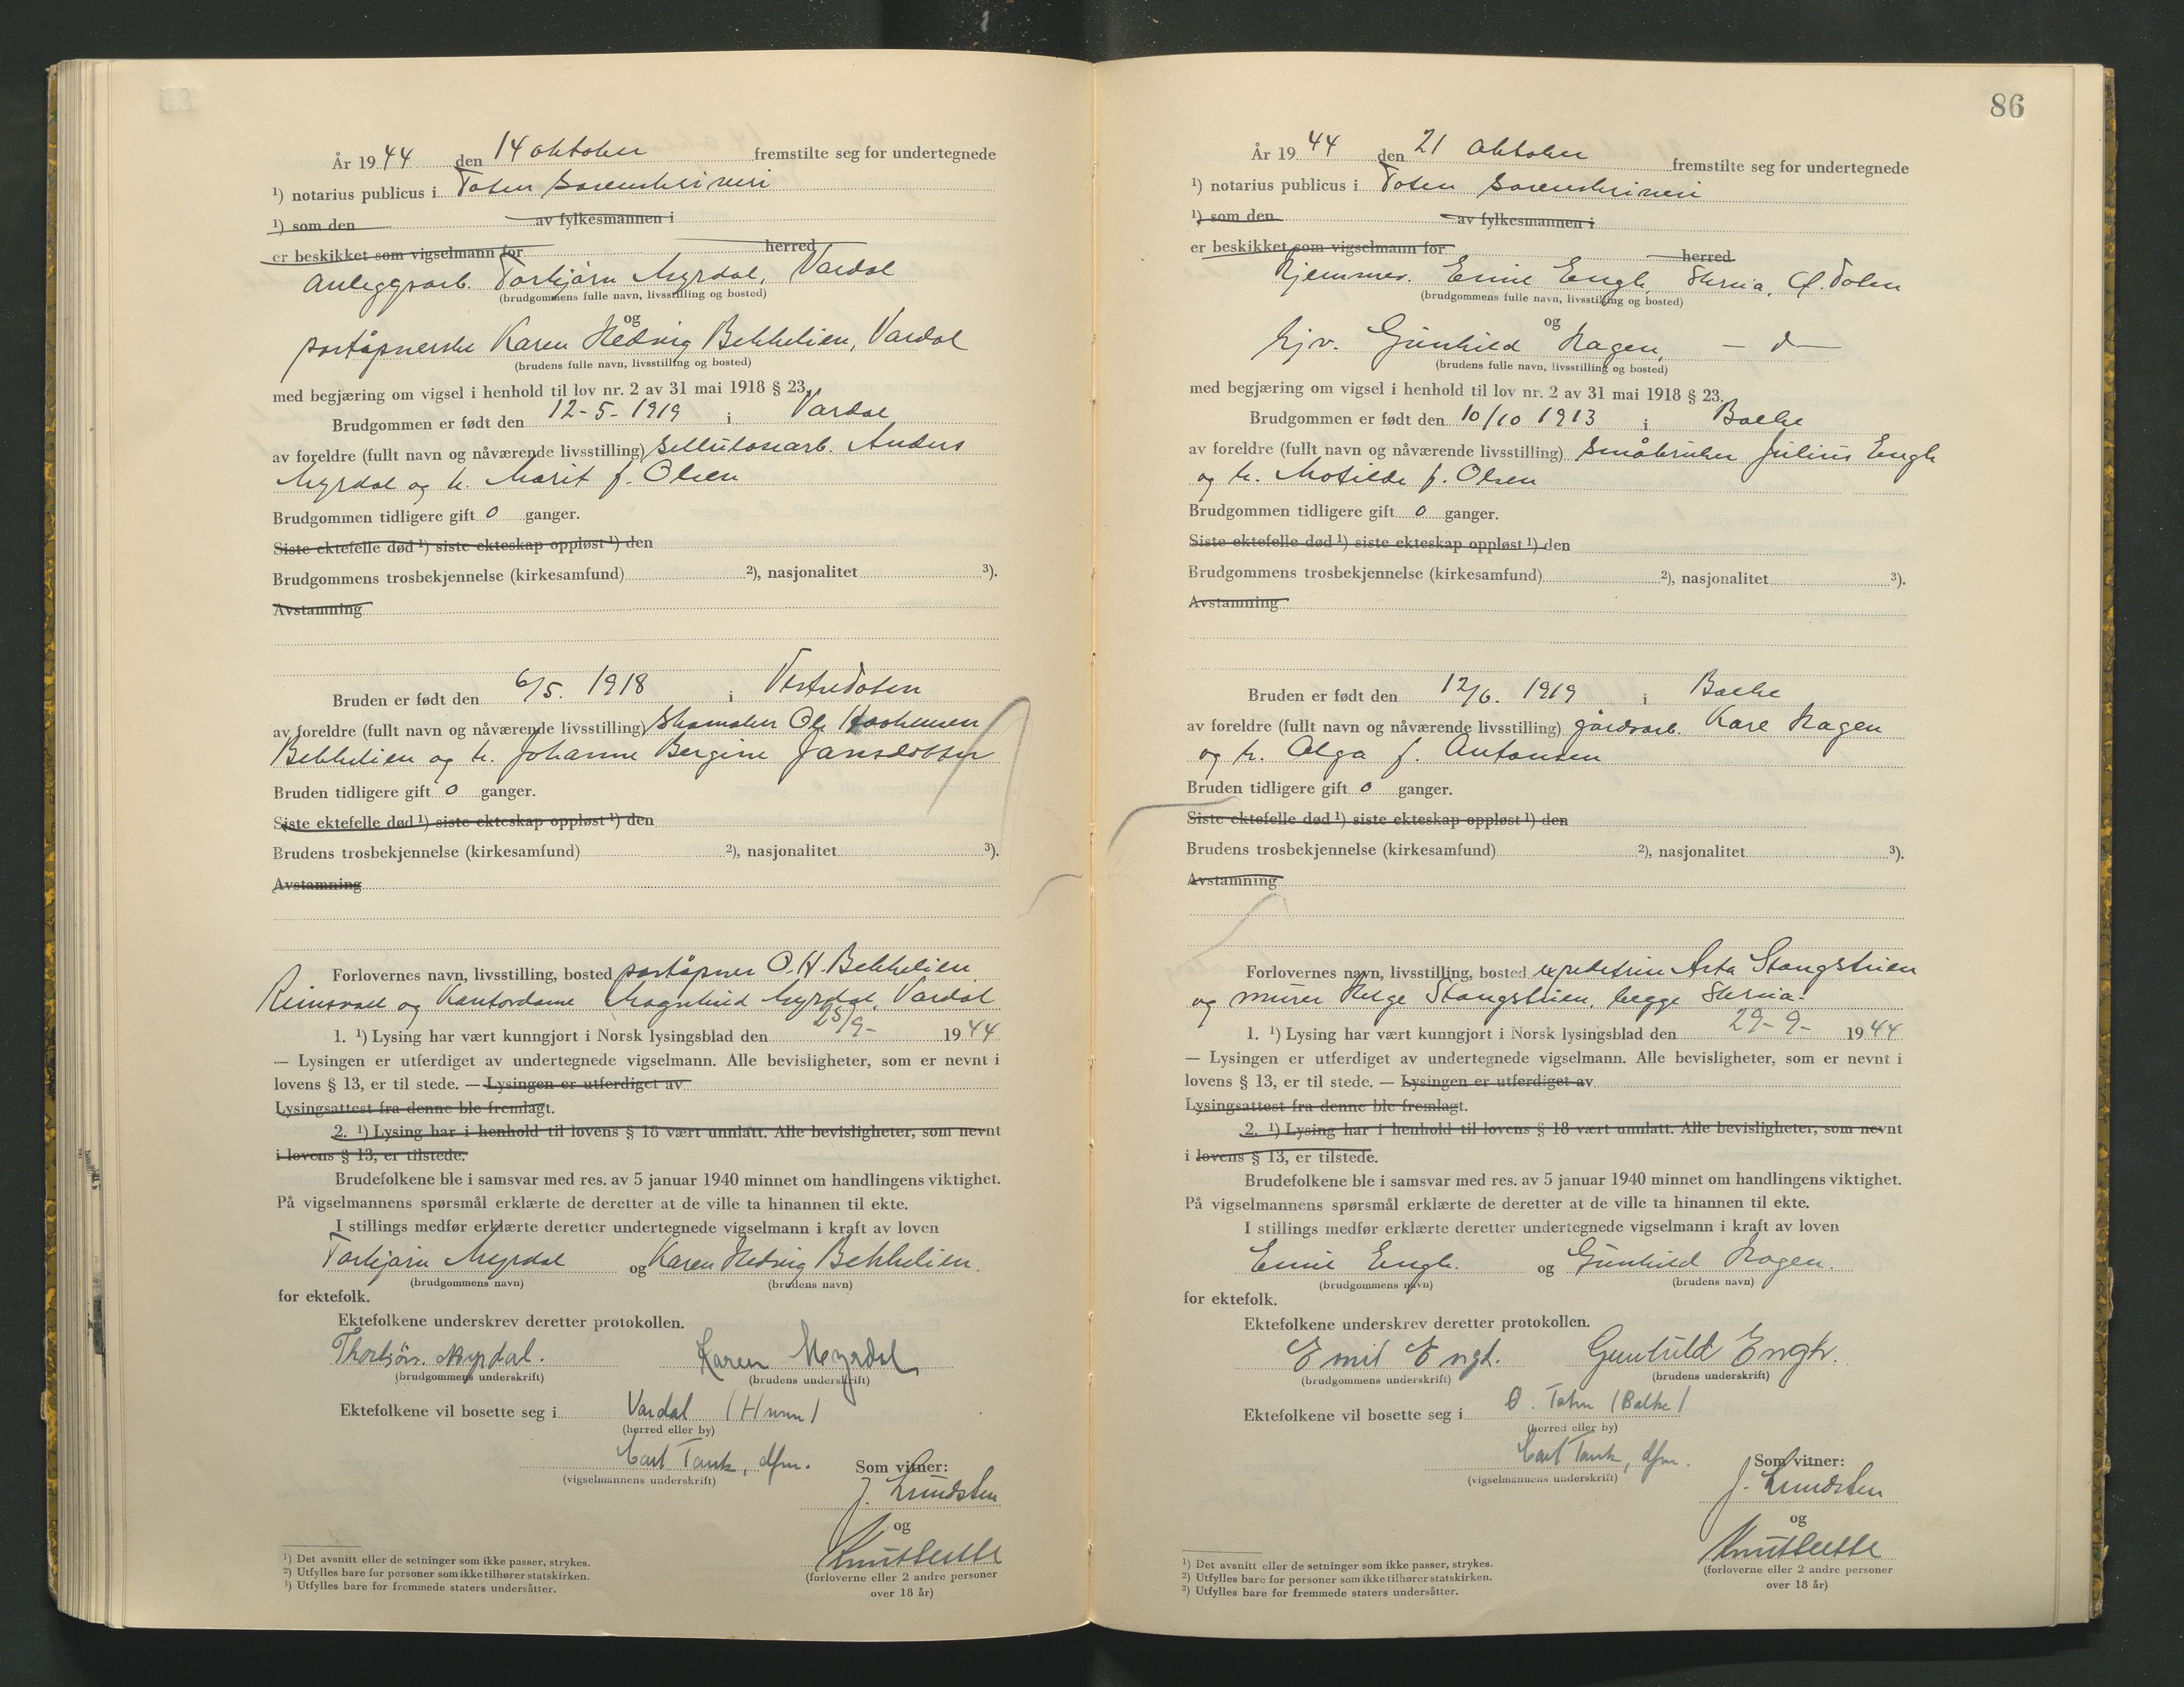 År 1944 den 14 oktober fremstilte seg for undertegnede
¹) notarius publicus i Toten sorenskriveri
¹) som den av fylkesmannen i
er beskikket som vigselmann for herred
Anleggsarb. Torbjørn Myrdal, Vardal
(brudgommens fulle navn, livsstilling og bosted)
og
poståpnerske Karen Hedvig Bekkelien, Vardal
(brudens fulle navn, livsstilling og bosted)
med begjæring om vigsel i henhold til lov nr. 2 av 31 mai 1918 § 23.
Brudgommen er født den 12-5-1919 i Vardal
av foreldre (fullt navn og nåværende livsstilling) sellulosearb. Anders
Myrdal og h. Marit f. Olsen
Brudgommen tidligere gift 0 ganger.
Siste ektefelle død ¹) siste ekteskap oppløst ¹) den
Brudgommens trosbekjennelse (kirkesamfund) ²), nasjonalitet ³).
Avstamning
Bruden er født den 6/5. 1918 i Vestre Toten
av foreldre (fullt navn og nåværende livsstilling) skomaker Ole
Bekkelien og h. Johanne Bergine Jansdotter
Bruden tidligere gift 0 ganger.
Siste ektefelle død ¹) siste ekteskap oppløst ¹) den
Brudens trosbekjennelse (kirkesamfund) ²), nasjonalitet ³).
Avstamning
Forlovernes navn, livsstilling, bosted poståpner O. H. Bekkelien
Reinsvoll og Kontordame Magnhild Myrdal, Vardal
1. ¹) Lysing har vært kunngjort i Norsk lysingsblad den 25/9- 1944
— Lysingen er utferdiget av undertegnede vigselmann. Alle bevisligheter, som er nevnt i
lovens § 13, er til stede. — Lysingen er utferdiget av
Lysingsattest fra denne ble fremlagt.
2. ¹) Lysing har i henhold til lovens § 18 vært unnlatt. Alle bevisligheter, som nevnt
i lovens § 13, er tilstede.
Brudefolkene ble i samsvar med res. av 5 januar 1940 minnet om handlingens viktighet.
På vigselmannens spørsmål erklærte de deretter at de ville ta hinannen til ekte.
I stillings medfør erklærte deretter undertegnede vigselmann i kraft av loven
Torbjørn Myrdal og Karen Hedvig Bekkelien.
(brudgommens navn) (brudens navn)
for ektefolk.
Ektefolkene underskrev deretter protokollen.
Thorbjørn Myrdal. Karen Myrdal
(brudgommens underskrift) (brudens underskrift)
Ektefolkene vil bosette seg i Vardal (Hunn)
(herred eller by)
Carl Tank, dfm. Som vitner:
(vigselmannens underskrift)
J. Lundsten
og
(forloverne eller 2 andre personer
over 18 år)
¹) Det avsnitt eller de setninger som ikke passer, strykes.
²) Utfylles bare for personer som ikke tilhører statskirken.
³) Utfylles bare for fremmede staters undersåtter.
86
År 1944 den 21 oktober fremstilte seg for undertegnede
¹) notarius publicus i Toten sorenskriveri
¹) som den av fylkesmannen i
er beskikket som vigselmann for herred
Hjemmev. Emil Engh, Skreia, Ø. Toten
(brudgommens fulle navn, livsstilling og bosted)
og
Hjv. Gunhild Hagen, — d —
(brudens fulle navn, livsstilling og bosted)
med begjæring om vigsel i henhold til lov nr. 2 av 31 mai 1918 § 23.
Brudgommen er født den 10/10 1913 i Balke
av foreldre (fullt navn og nåværende livsstilling) Småbruker Julius Engh
og h. Matilde f. Olsen
Brudgommen tidligere gift 0 ganger.
Siste ektefelle død ¹) siste ekteskap oppløst ¹) den
Brudgommens trosbekjennelse (kirkesamfund) ²), nasjonalitet ³).
Avstamning
Bruden er født den 12/6. 1919 i Balke
av foreldre (fullt navn og nåværende livsstilling) gårdsarb. Kare Hagen
og h. Olga f. Antonsen
Bruden tidligere gift 0 ganger.
Siste ektefelle død ¹) siste ekteskap oppløst ¹) den
Brudens trosbekjennelse (kirkesamfund) ²), nasjonalitet ³).
Avstamning
Forlovernes navn, livsstilling, bosted Asta Stangstuen
og murer Helge Stangstuen, begge Skreia.
1. ¹) Lysing har vært kunngjort i Norsk lysingsblad den 29-9- 1944
— Lysingen er utferdiget av undertegnede vigselmann. Alle bevisligheter, som er nevnt i
lovens § 13, er til stede. — Lysingen er utferdiget av
Lysingsattest fra denne ble fremlagt.
2. ¹) Lysing har i henhold til lovens § 18 vært unnlatt. Alle bevisligheter, som nevnt
i lovens § 13, er tilstede.
Brudefolkene ble i samsvar med res. av 5 januar 1940 minnet om handlingens viktighet.
På vigselmannens spørsmål erklærte de deretter at de ville ta hinannen til ekte.
I stillings medfør erklærte deretter undertegnede vigselmann i kraft av loven
Emil Engh. og Gunhild Hagen.
(brudgommens navn) (brudens navn)
for ektefolk.
Ektefolkene underskrev deretter protokollen.
Emil Engh. Gunhild Engh.
(brudgommens underskrift) (brudens underskrift)
Ektefolkene vil bosette seg i Ø. Toten (Balke)
(herred eller by)
Carl Tank, dfm. Som vitner:
(vigselmannens underskrift)
J. Lundsten
og
(forloverne eller 2 andre personer
over 18 år)
¹) Det avsnitt eller de setninger som ikke passer, strykes.
²) Utfylles bare for personer som ikke tilhører statskirken.
³) Utfylles bare for fremmede staters undersåtter.